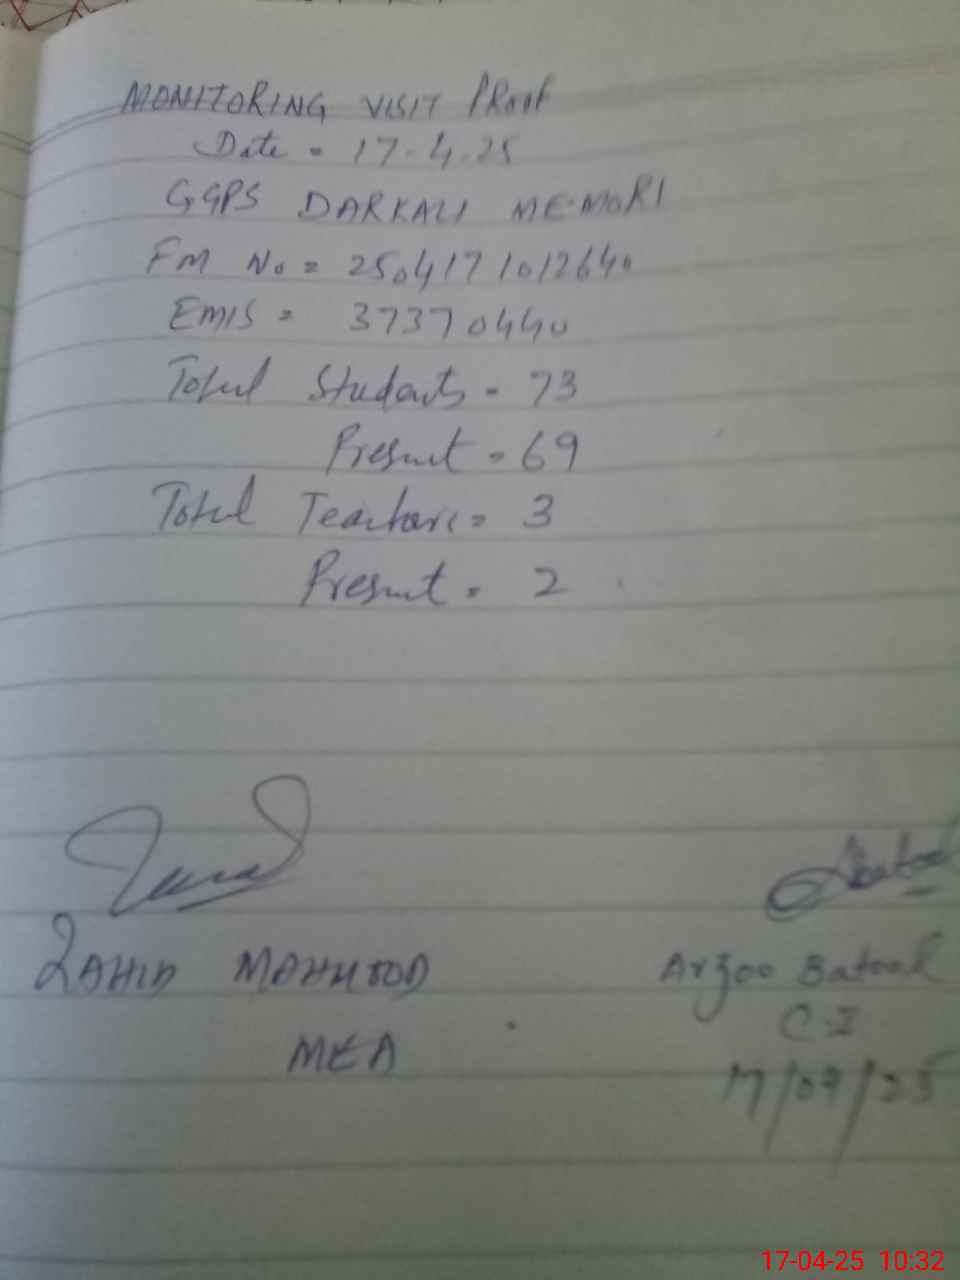 MONITORING VISIT PROOF
Date = 17-4-25
GGPS DARKALI MEMORI
FM No = 2504171012640
EMIS = 37370440
Total Students = 73
Present = 69
Total Teachers = 3
Present = 2
ZAHID MAHMOOD
MEA
Arzoo Batool
C.I
17-04-25 10:32